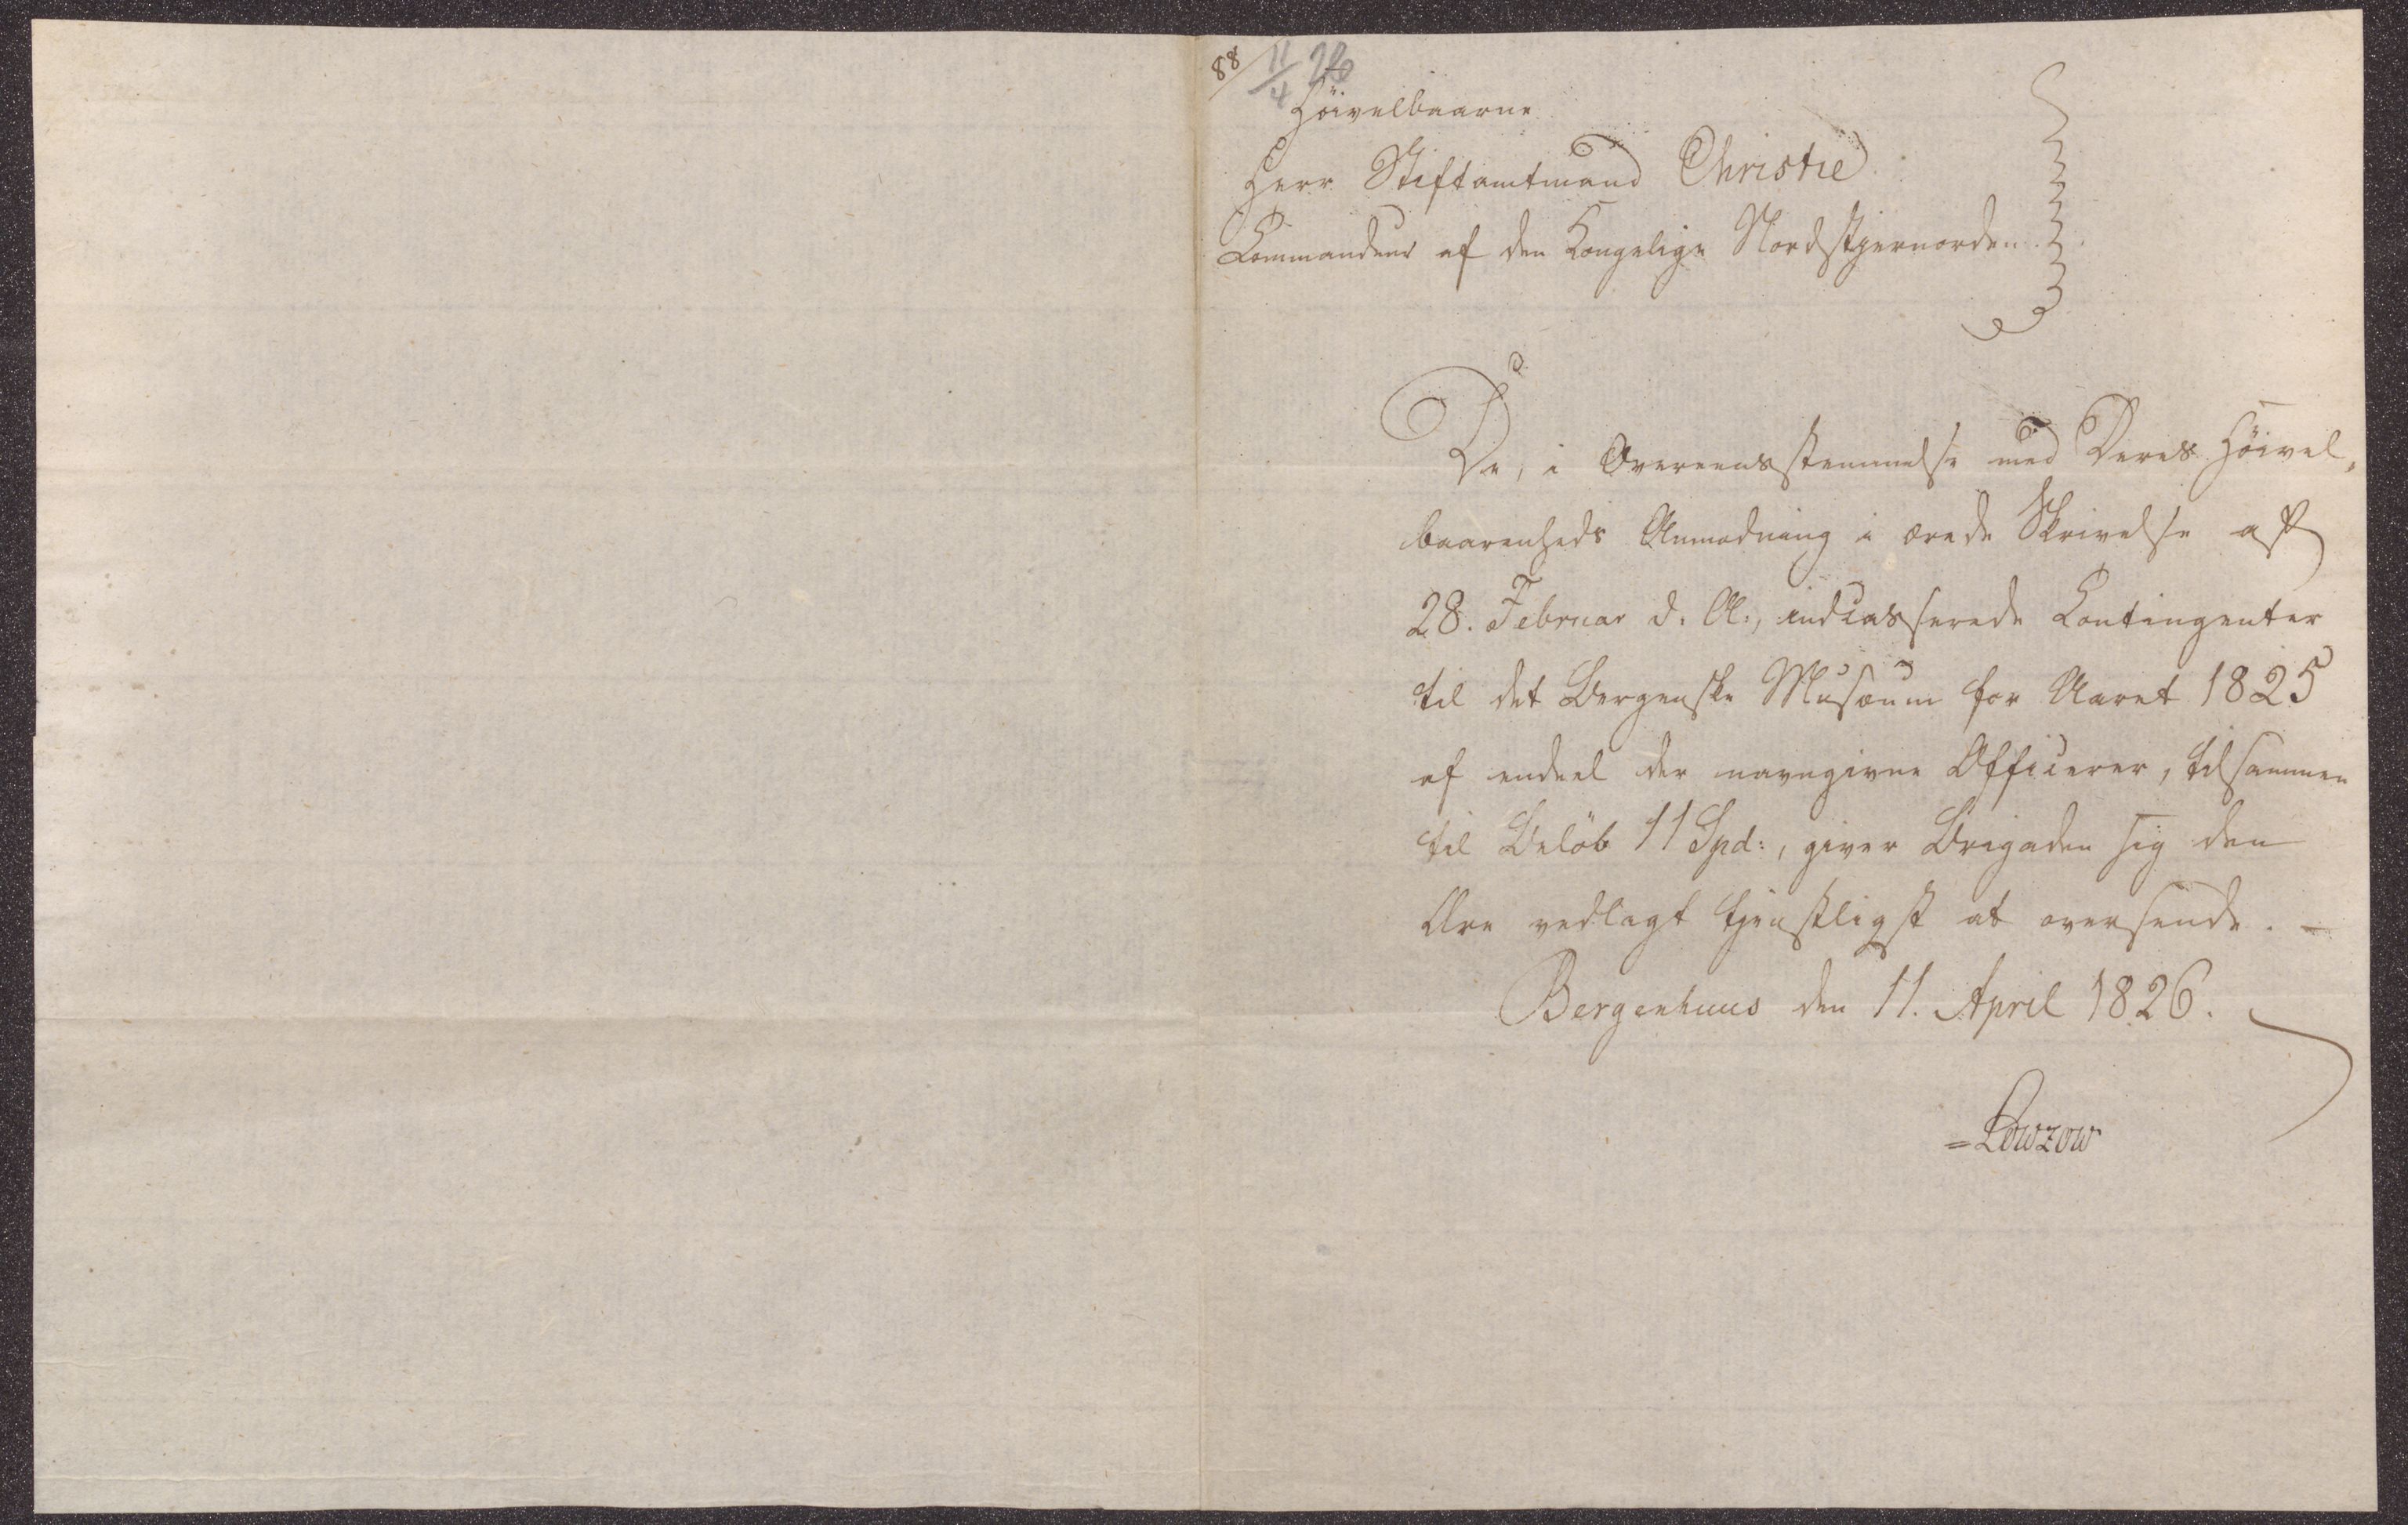 88
11/4 26
Höivelbaarne
Herr Stiftamtmand Christie
Commandeur af den Kongelige Nordstjernorden.
De, i Overeensstemmelse med Deres Höivel-
baarenheds Anmodning i ærede Skrivelse af
28. Februar d. A:, indcasserede Contingenter
til det Bergenske Musæum for Aaret 1825
af endeel der navngivne Officerer, tilsammen
til Belöb 11 Spd:, giver Brigaden sig den
Ære vedlagt tjenstligst at oversende. -
Bergenhuus den 11. April 1826.
=Lowzow